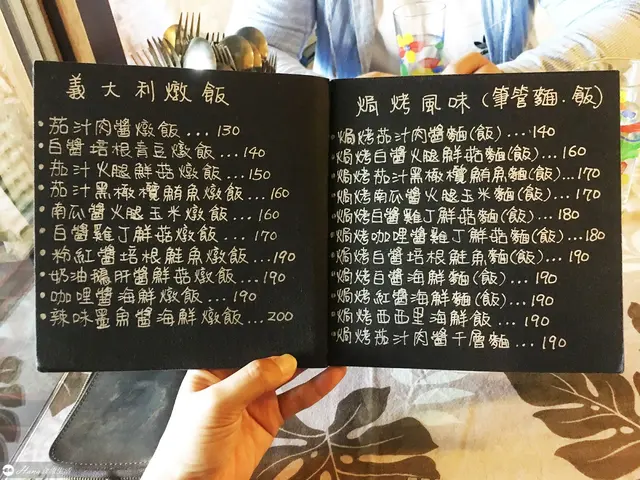 義大利燉飯
茄汁肉醬燉飯...130
白醬培根青豆燉飯...140
茄汁火腿鮮菇燉飯...150
茄汁黑橄欖鮪魚燉飯...160
南瓜醬火腿玉米燉飯...160
白醬雞丁鮮菇燉飯...170
粉紅醬培根鮭魚燉飯...190
奶油鵝肝醬鮮菇燉飯...190
咖哩醬海鮮燉飯...190
辣味墨魚醬海鮮燉飯...200
焗烤風味(筆管麵.飯)
焗烤茄汁肉醬麵(飯)...140
焗烤白醬火腿鮮菇麵(飯)...160
焗烤茄汁黑橄欖鮪魚麵(飯)...170
焗烤南瓜醬火腿玉米麵(飯)...170
焗烤白醬雞丁鮮菇麵(飯)...180
焗烤咖哩醬雞丁鮮菇麵(飯)...180
焗烤白醬培根鮭魚麵(飯)...190
焗烤白醬海鮮麵(飯)...190
焗烤紅醬海鮮麵(飯)...190
焗烤西西里海鮮飯...190
焗烤茄汁肉醬千層麵...190